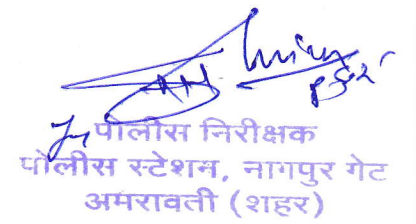 पोलीस निरीक्षक
पोलीस स्टेशन, नागपुर गेट
अमरावती (शहर)